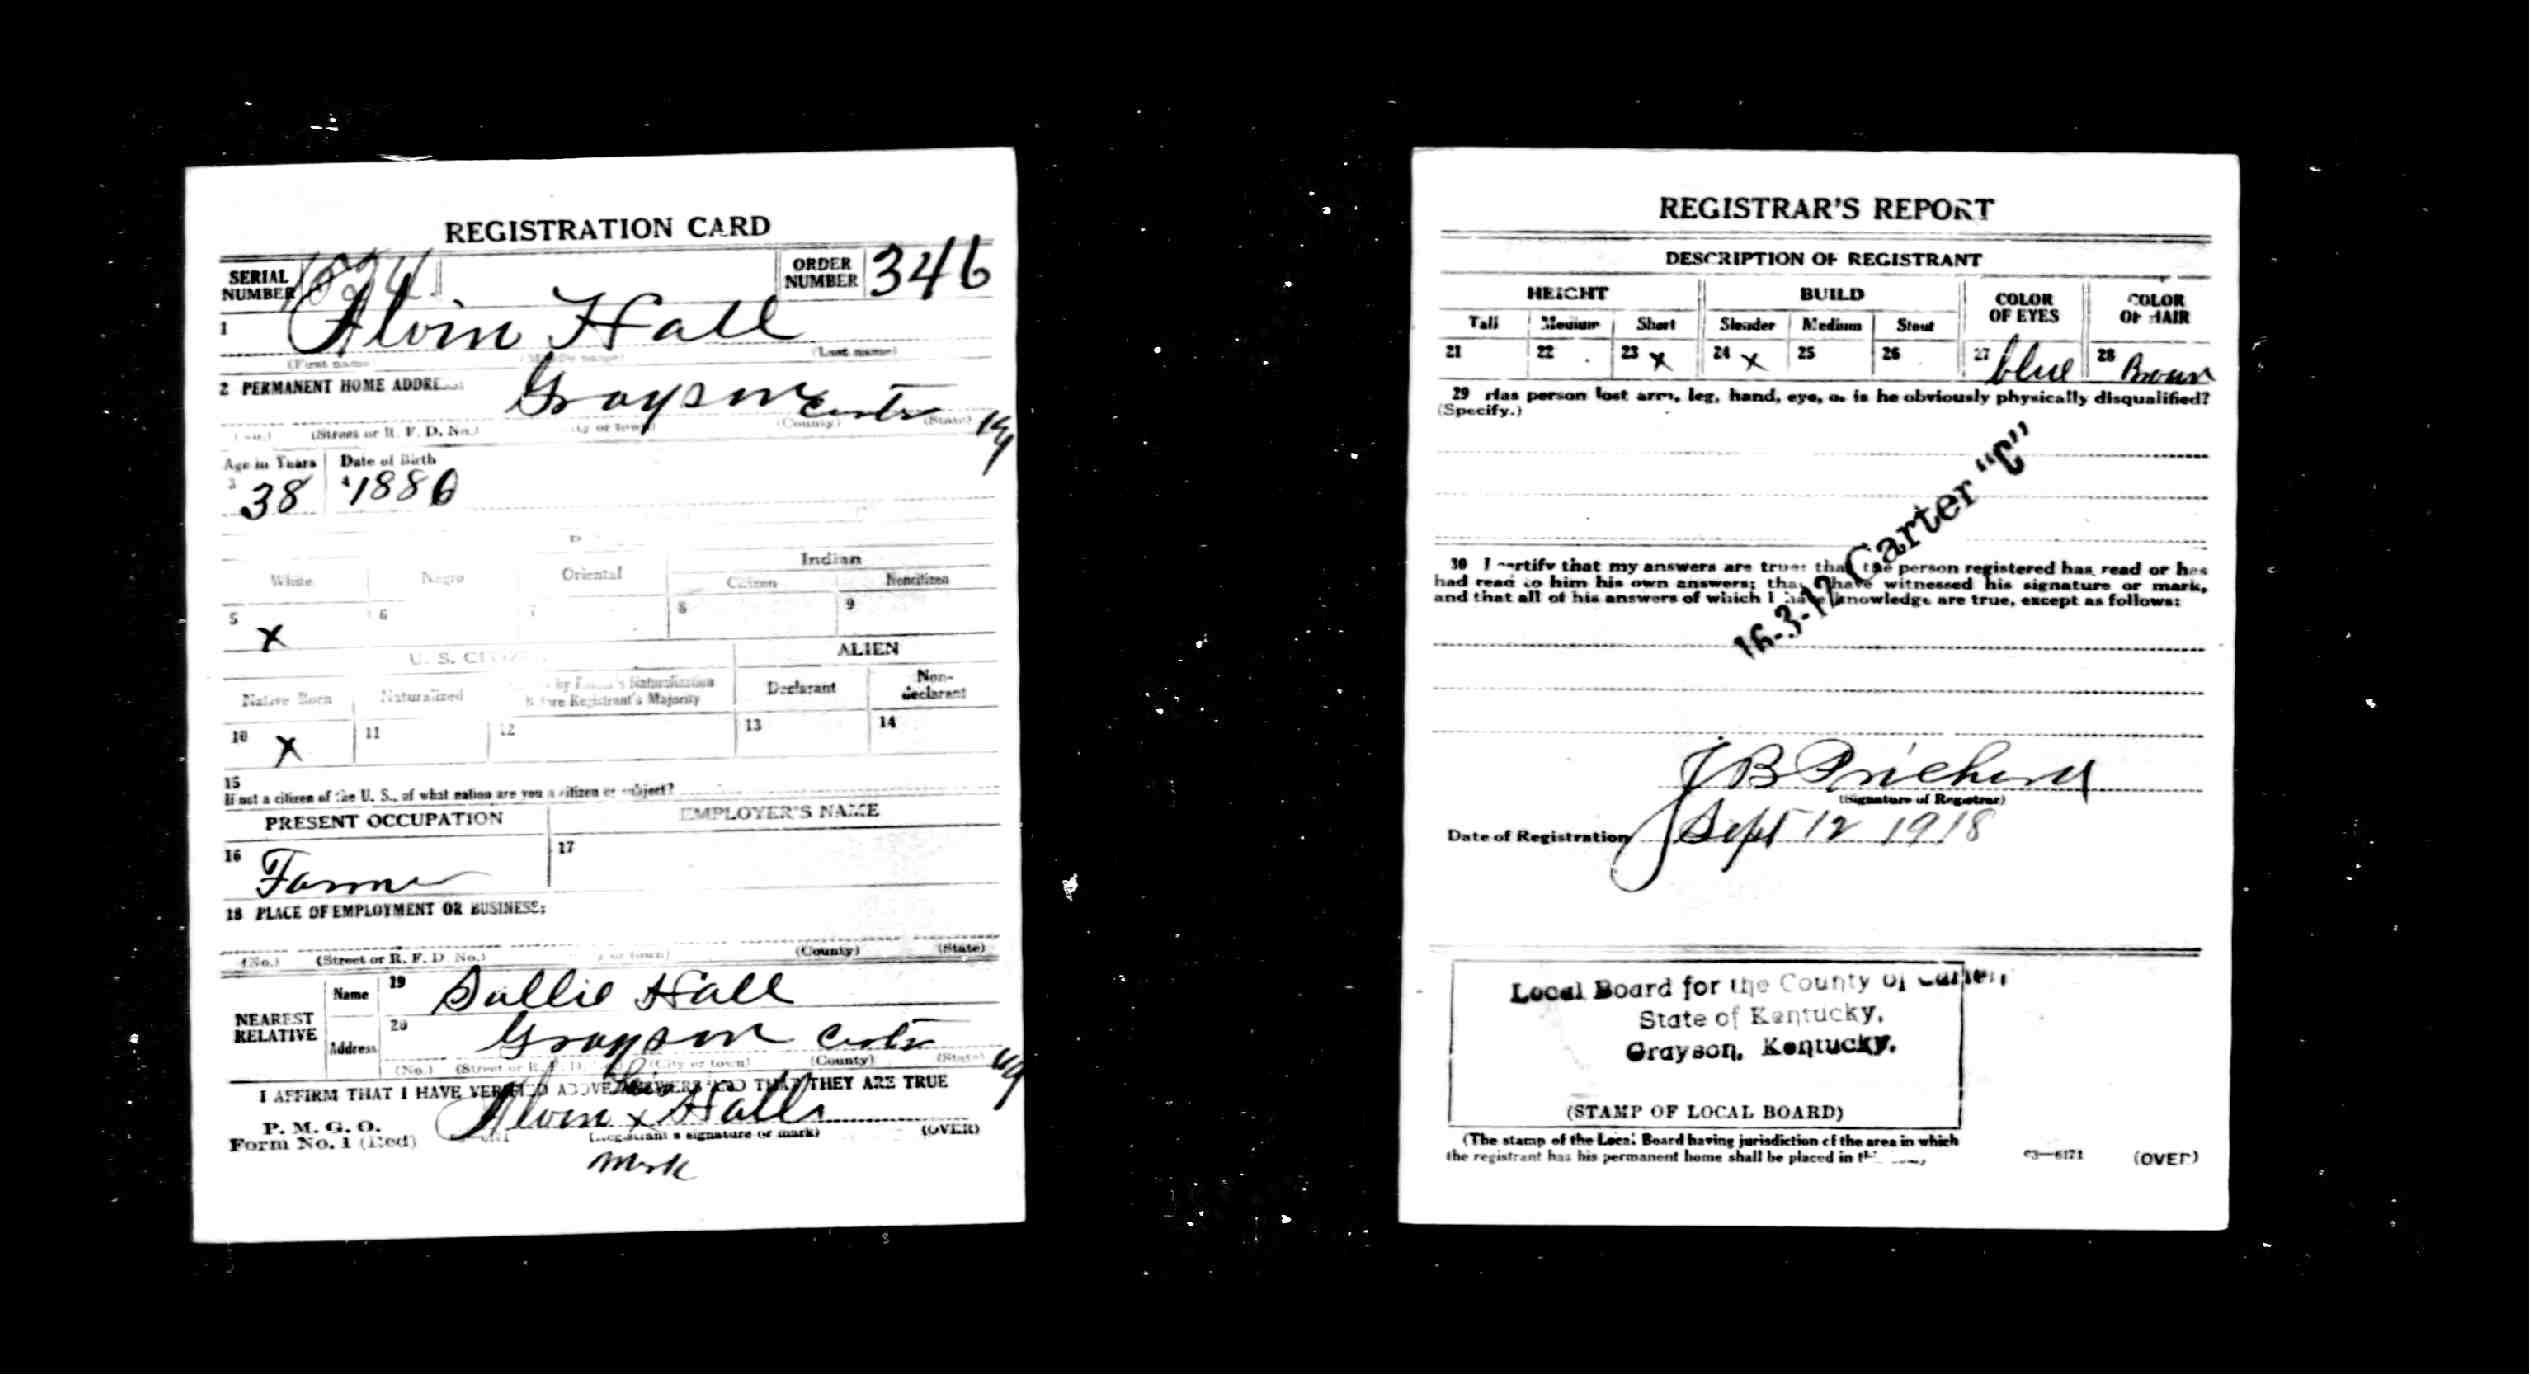 REGISTRATION CARD
SERIAL NUMBER 1524 ORDER NUMBER 346
1 Alvin Hall
(First name) (Middle name) (Last name)
2 PERMANENT HOME ADDRESS:
Grayson Carter Ky
(No.) (Street or R. F. D. No.) (City or town) (County) (State)
Age in Years Date of Birth
3 38 4 1880
Indian
White Negro Oriental Citizen Noncitizen
5 X 6 7 8 9
U. S. CITIZEN ALIEN
Native Born Naturalized Citizen by Father's Naturalization Before Registrant's Majority Declarant Non-declarant
10 X 11 12 13 14
15
If not a citizen of the U. S., of what nation are you a citizen or subject?
PRESENT OCCUPATION EMPLOYER'S NAME
16 Farmer 17
18 PLACE OF EMPLOYMENT OR BUSINESS:
(No.) (Street or R. F. D. No.) (City or town) (County) (State)
NEAREST RELATIVE Name 19 Sallie Hall
Address 20 Grayson Carter Ky
(No.) (Street or R. F. D. No.) (City or town) (County) (State)
I AFFIRM THAT I HAVE VERIFIED ABOVE ANSWERS AND THAT THEY ARE TRUE
his
P. M. G. O.
Form No. 1 (Red) Alvin x Hall
(Registrant's signature or mark) (OVER)
mark
REGISTRAR'S REPORT
DESCRIPTION OF REGISTRANT
HEIGHT BUILD COLOR OF EYES COLOR OF HAIR
Tall Medium Short Slender Medium Stout
21 22 23 x 24 x 25 26 27 blue 28 Brown
29 Has person lost arm, leg, hand, eye, or is he obviously physically disqualified?
(Specify.)
16-3-12 Carter "C"
30 I certify that my answers are true; that the person registered has read or has
had read to him his own answers; that I have witnessed his signature or mark,
and that all of his answers of which I have knowledge are true, except as follows:
J B Prichard
(Signature of Registrar)
Date of Registration Sept 12 1918
Local Board for the County of Carter,
State of Kentucky,
Grayson, Kentucky.
(STAMP OF LOCAL BOARD)
(The stamp of the Local Board having jurisdiction of the area in which
the registrant has his permanent home shall be placed in this
03—6171 (OVER)